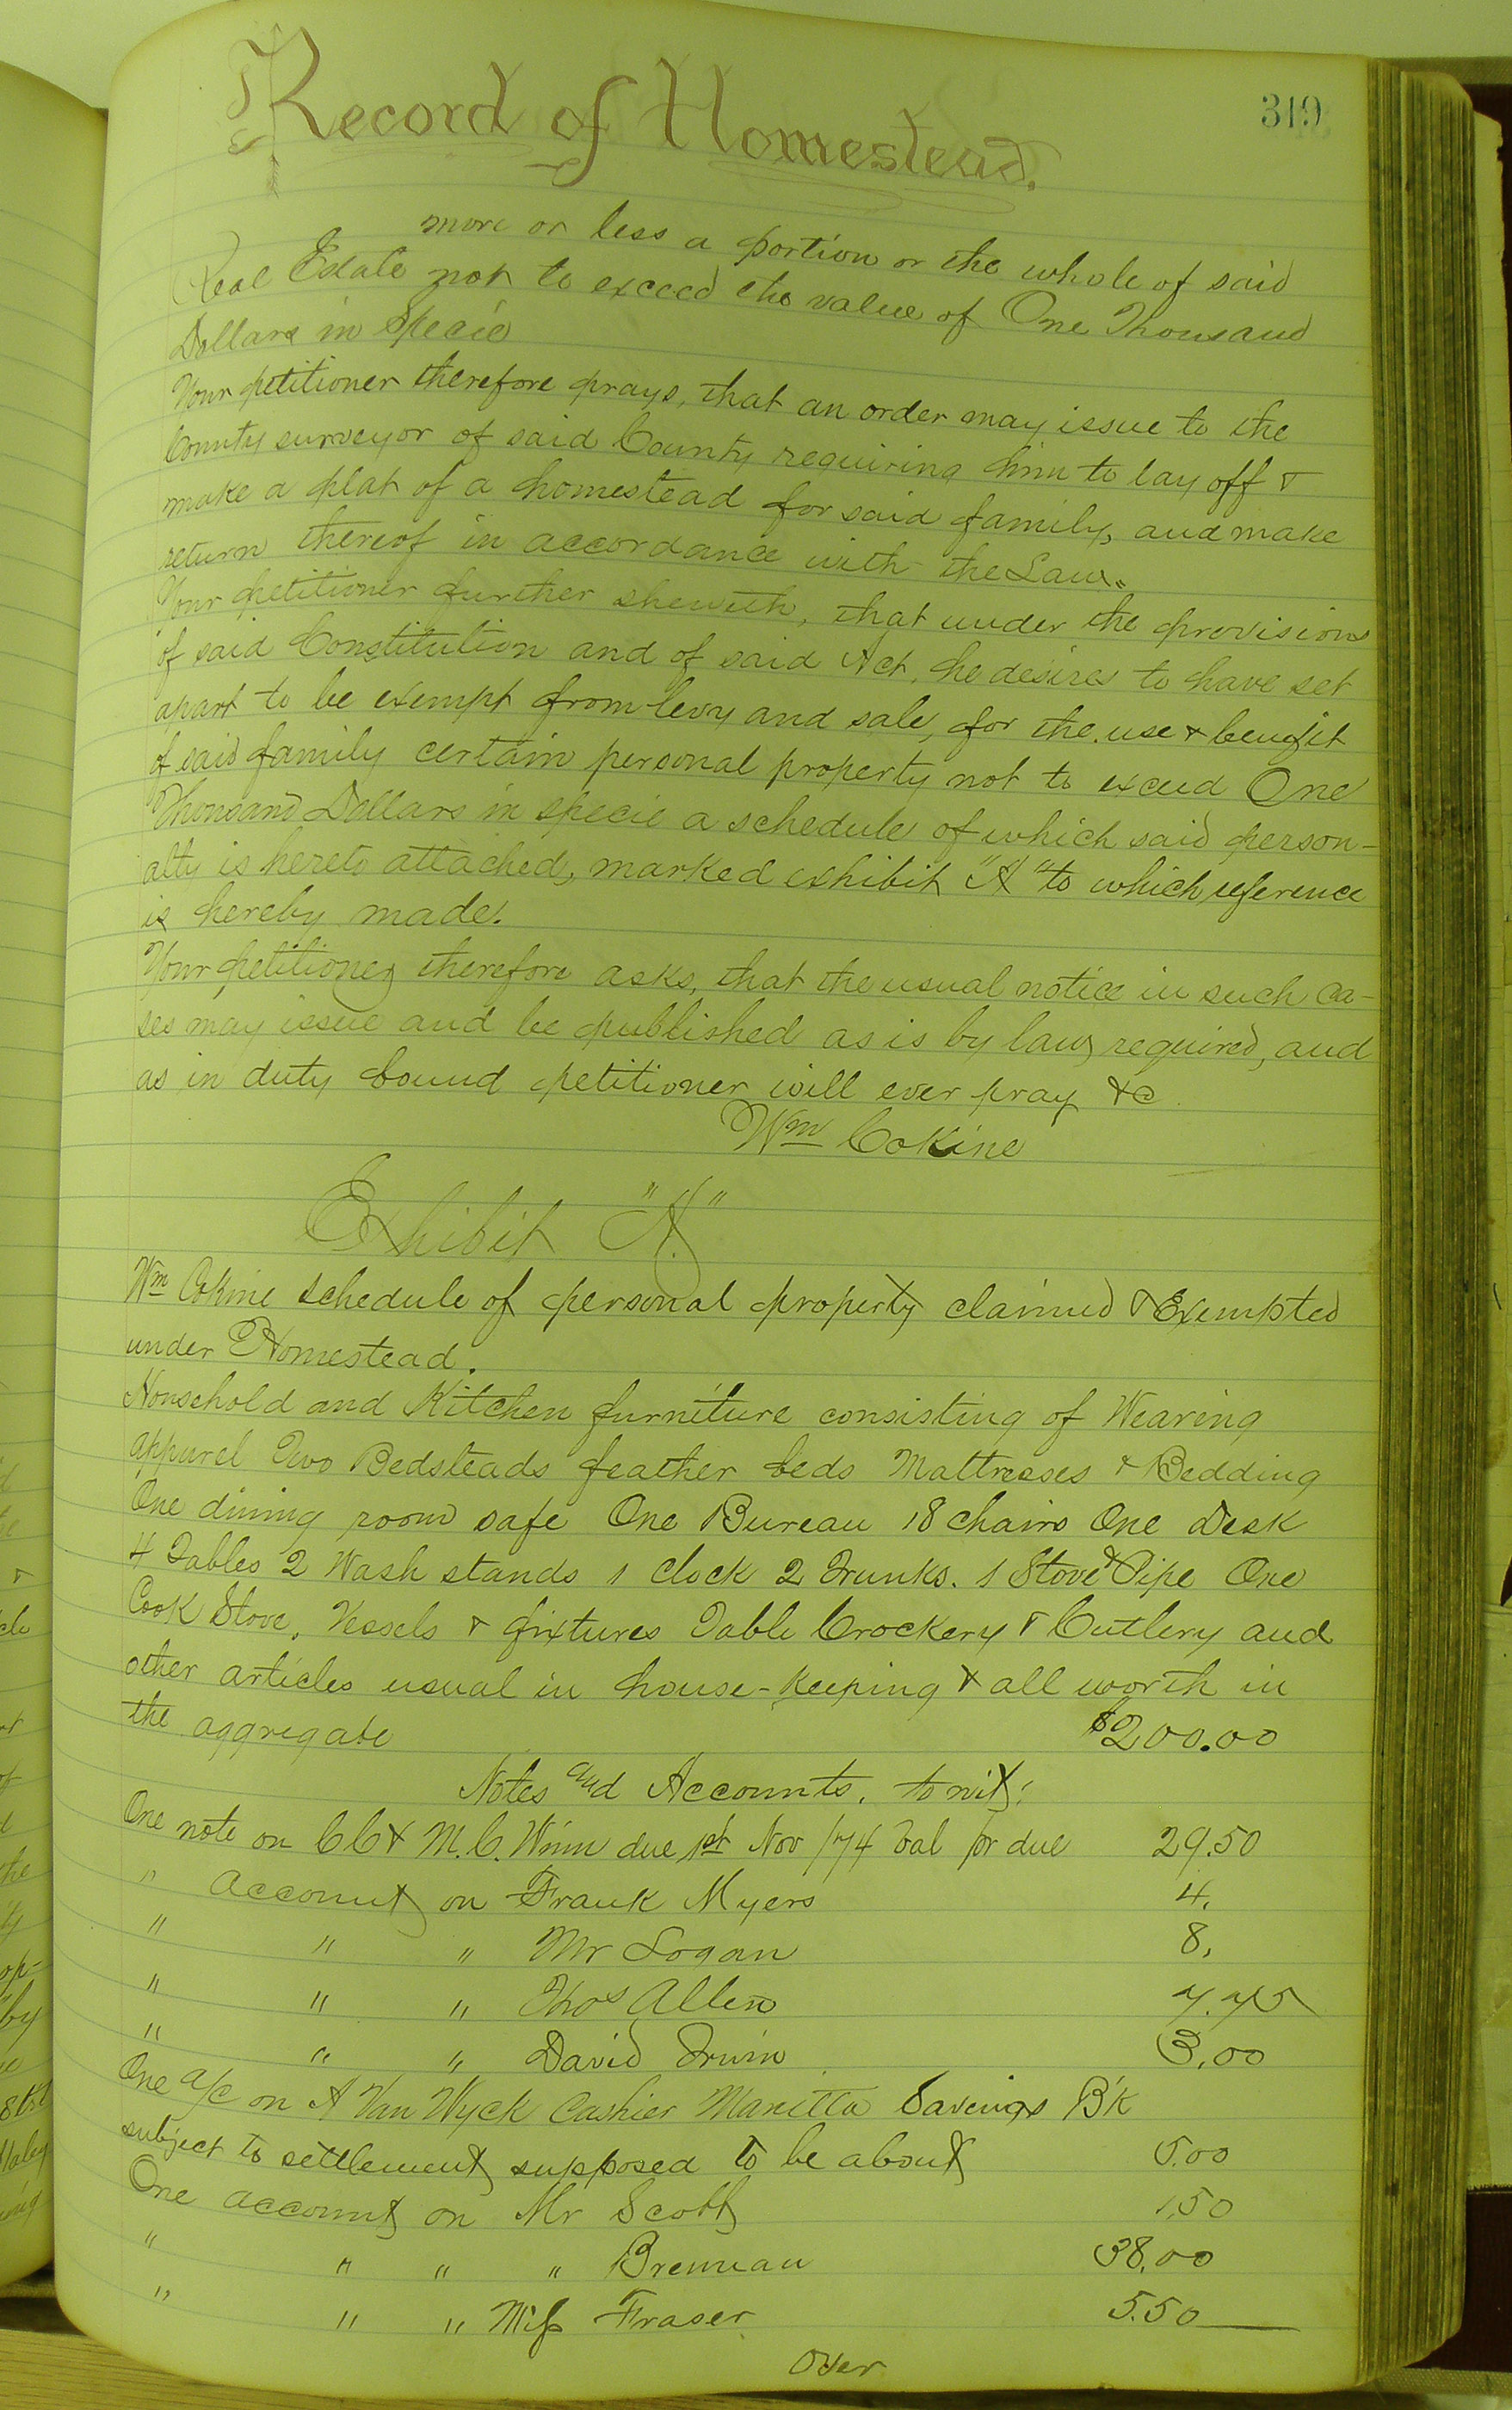 319
Record of Homestead.
more or less a portion or the whole of said
Real Estate not to exceed the value of One Thousand
Dollars in Specie
Your petitioner therefore prays, that an order may issue to the
County surveyor of said County requiring him to lay off &
make a plat of a homestead for said family, and make
return thereof in accordance with the Law.
Your petitioner further sheweth, that under the provisions
of said Constitution and of said Act, he desires to have set
apart to be exempt from levy and sale, for the use & benefit
of said family certain personal property not to exceed One
Thousand Dollars in specie a schedule of which said person-
alty is hereto attached, marked exhibit "A" to which reference
is hereby made.
Your petitioner therefore asks, that the usual notice in such ca-
ses may issue and be published as is by law required, and
as in duty bound petitioner will ever pray &c
Wm Cokine
Exhibit "A."
Wm Cokine schedule of personal property claimed & Exempted
under Homestead.
Household and Kitchen furniture consisting of Wearing
appurel Two Bedsteads feather beds Mattresses & Bedding
One dining room safe One Bureau 18 chairs One Desk
4 Tables 2 Wash stands 1 Clock 2 Trunks. 1 Stove & Pipe One
Cook Stove, Vessels & fixtures Table Crockery & Cutlery and
other articles usual in house-keeping & all worth in
the aggregate $200.00
Notes and Accounts, to wit:
One note on C C & M. C. Winn due 1st Nov /74 bal due 29.50
" Account on Frank Myers 4.
" " " Mr Logan 8,
" " " Thos Allen 7.75
" " " David Irwin 3.00
One a/c on A Van Wyck Cashier Marietta Savings B'k
subject to settlement supposed to be about 5.00
One account on Mr Scott 1.50
" " " " Brennan 38.00
" " " Miss Fraser 5.50
Over